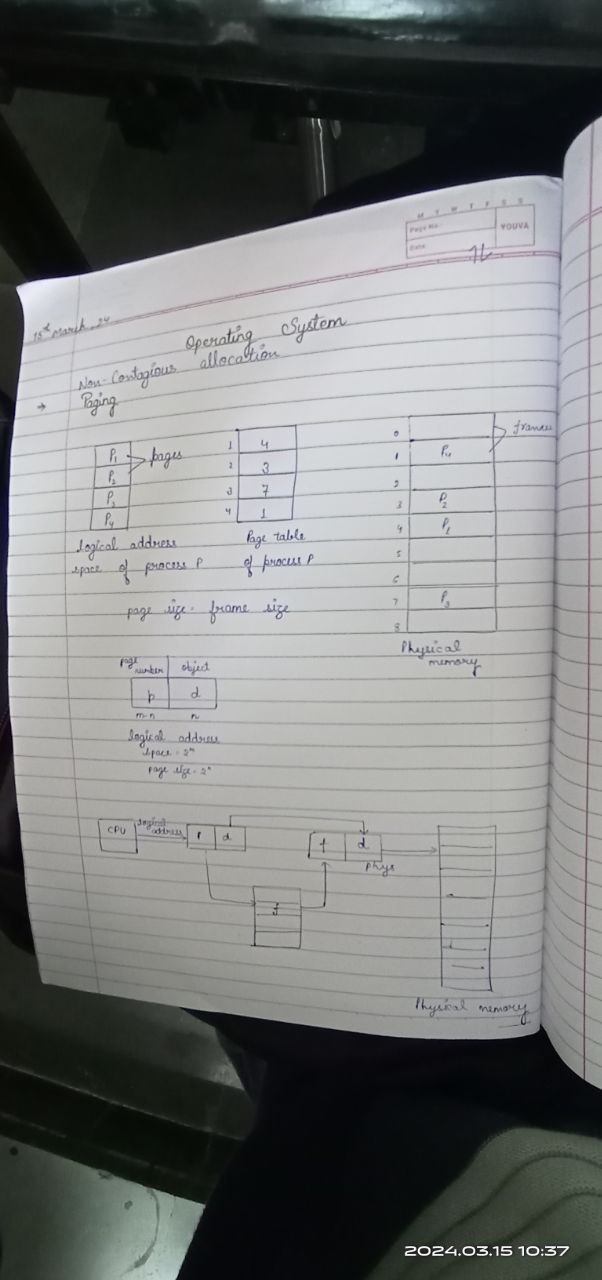 M T W T F S S
Page No.:
YOUVA
Date:
15th March, 24
Operating System
Non-Contagious allocation
→ Paging
P1
P2
P3
P4
pages
logical address
space of process P
1 4
2 3
3 7
4 1
Page table
of process P
0
1 P4
2
3 P2
4 P1
5
6
7 P3
8
frames
Physical
memory
page size = frame size
page
number
object
p d
m-n n
logical address
space = 2^m
page size = 2^n
CPU
logical
address
p d
f d
Phys
f
Physical memory
2024.03.15 10:37